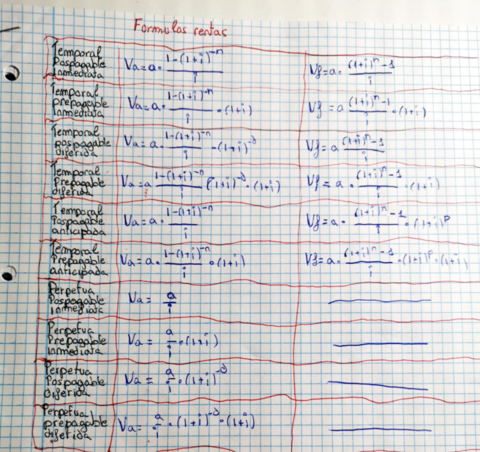 Formulas rentas
Temporal
Pospagable
inmediata
Va = a · 1-(1+i)^-n / i
Vf = a · (1+i)^n - 1 / i
Temporal
prepagable
inmediata
Va = a · 1-(1+i)^-n / i · (1+i)
Vf = a (1+i)^n - 1 / i · (1+i)
Temporal
pospagable
diferida
Va = a · 1-(1+i)^-n / i · (1+i)^-d
Vf = a (1+i)^n - 1 / i
Temporal
Prepagable
diferida
Va = a 1-(1+i)^-n / i (1+i)^-d · (1+i)
Vf = a · (1+i)^n - 1 / i · (1+i)
Temporal
Pospagable
anticipada
Va = a · 1-(1+i)^-n / i
Vf = a · (1+i)^n - 1 / i · (1+i)^p
Temporal
Prepagable
anticipada
Va = a · 1-(1+i)^-n / i · (1+i)
Vf = a · (1+i)^n - 1 / i · (1+i)^p · (1+i)
Perpetua
Pospagable
Inmediata
Va = a / i
Perpetua
Prepagable
inmediata
Va = a / i · (1+i)
Perpetua
Pospagable
diferida
Va = a / i · (1+i)^-d
Perpetua
prepagable
diferida
Va = a / i · (1+i)^-d · (1+i)